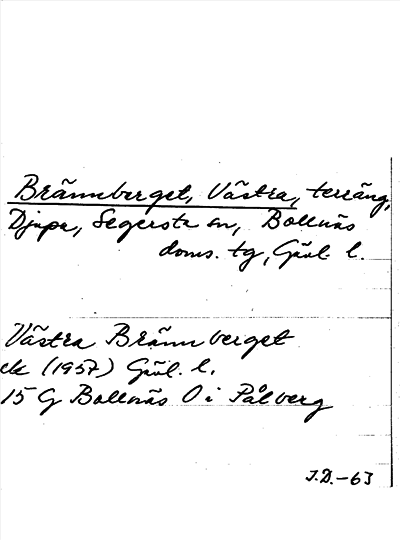 Brännberget, Västra, terräng,
Djupa, Segersta sn, Bollnäs
doms. tg, Gävl. l.
Västra Brännberget
ek (1957) Gävl. l.
15 G Bollnäs O i Pålberg
J.D.-63